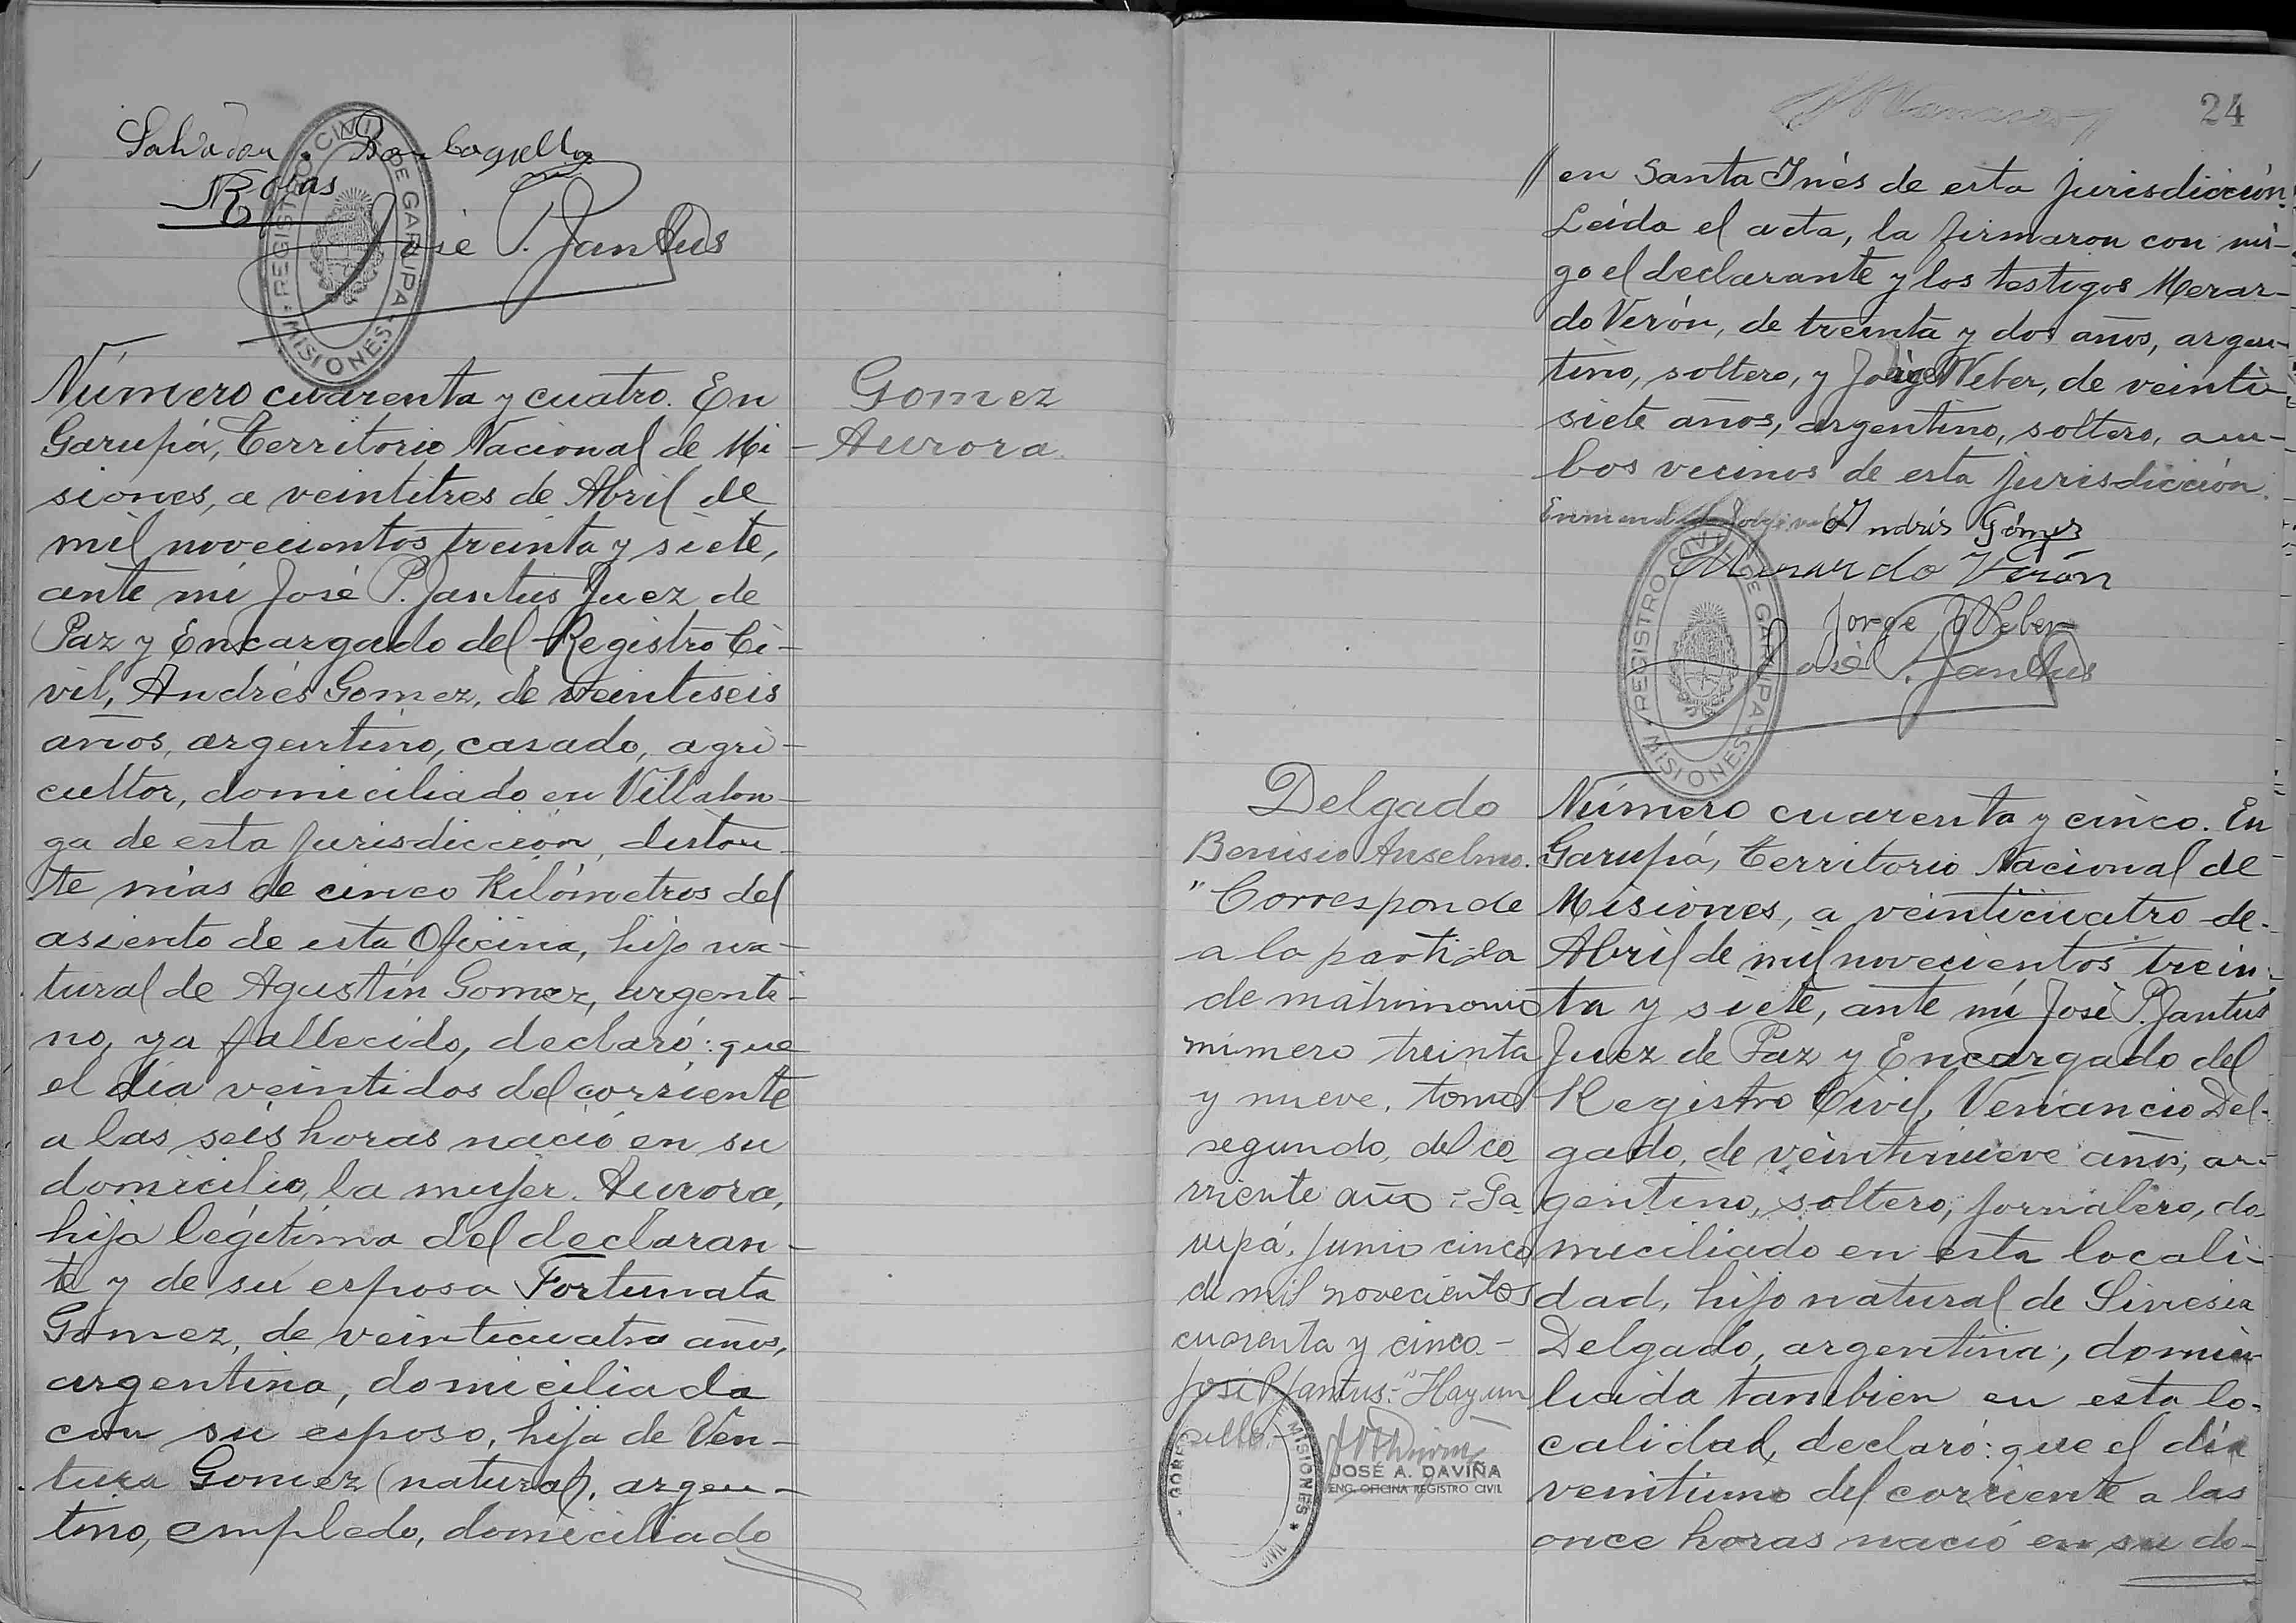 Salvador Bonbagella
Rojas
José P. Jantus
REGISTRO CIVIL DE GARUPA
MISIONES
Número cuarenta y cuatro. En
Garupá, Territorio Nacional de Mi-
siones, a veintitres de Abril de
mil novecientos treinta y siete,
ante mi José P. Jantus Juez de
Paz y Encargado del Registro Ci-
vil, Andrés Gomez, de veintiseis
años, argentino, casado, agri-
cultor, domiciliado en Villalon-
ga de esta jurisdicción, distan-
te mas de cinco Kilómetros del
asiento de esta Oficina, hijo na-
tural de Agustín Gomez, argenti-
no, ya fallecido, declaró: que
el día veintidos del corriente
a las seis horas nació en su
domicilio, la mujer. Aurora,
hija legítima del declaran-
te y de su esposa Fortunata
Gomez, de veinticuatro años,
argentina, domiciliada
con su esposo, hija de Ven-
tura Gomez (natural), argen-
tino, empledo, domiciliado
Gomez
Aurora
24
en Santa Inés de esta jurisdicción.
Leída el acta, la firmaron con mi-
go el declarante y los testigos Merar-
do Verón, de treinta y dos años, argen-
tino, soltero, y Jorge Weber, de veinti-
siete años, argentino, soltero, am-
bos vecinos de esta jurisdicción.
Enmendado Jorge vale Andrés Gómez
Merardo Verón
Jorge Weber
José P. Jantus
REGISTRO CIVIL DE GARUPA
MISIONES
Delgado
Benisio Anselmo.
"Corresponde
a la partida
de matrimonio
número treinta
y nueve, tomo
segundo, del co
rriente año - Ga
rupá, junio cinco
de mil novecientos
cuarenta y cinco.-
José P. Jantus.-" Hay un
sello.-
MISIONES
JOSÉ A. DAVIÑA
ENC. OFICINA REGISTRO CIVIL
Número cuarenta y cinco. En
Garupá, Territorio Nacional de
Misiones, a veinticuatro de
Abril de mil novecientos trein-
ta y siete, ante mi José P. Jantus
Juez de Paz y Encargado del
Registro Civil, Venancio Del-
gado, de veintinueve años, ar-
gentino, soltero, jornalero, do
miciliado en esta locali-
dad, hijo natural de Sinesia
Delgado, argentina, domici
liada tambien en esta lo-
calidad, declaró: que el día
veintiuno del corriente a las
once horas nació en su do-